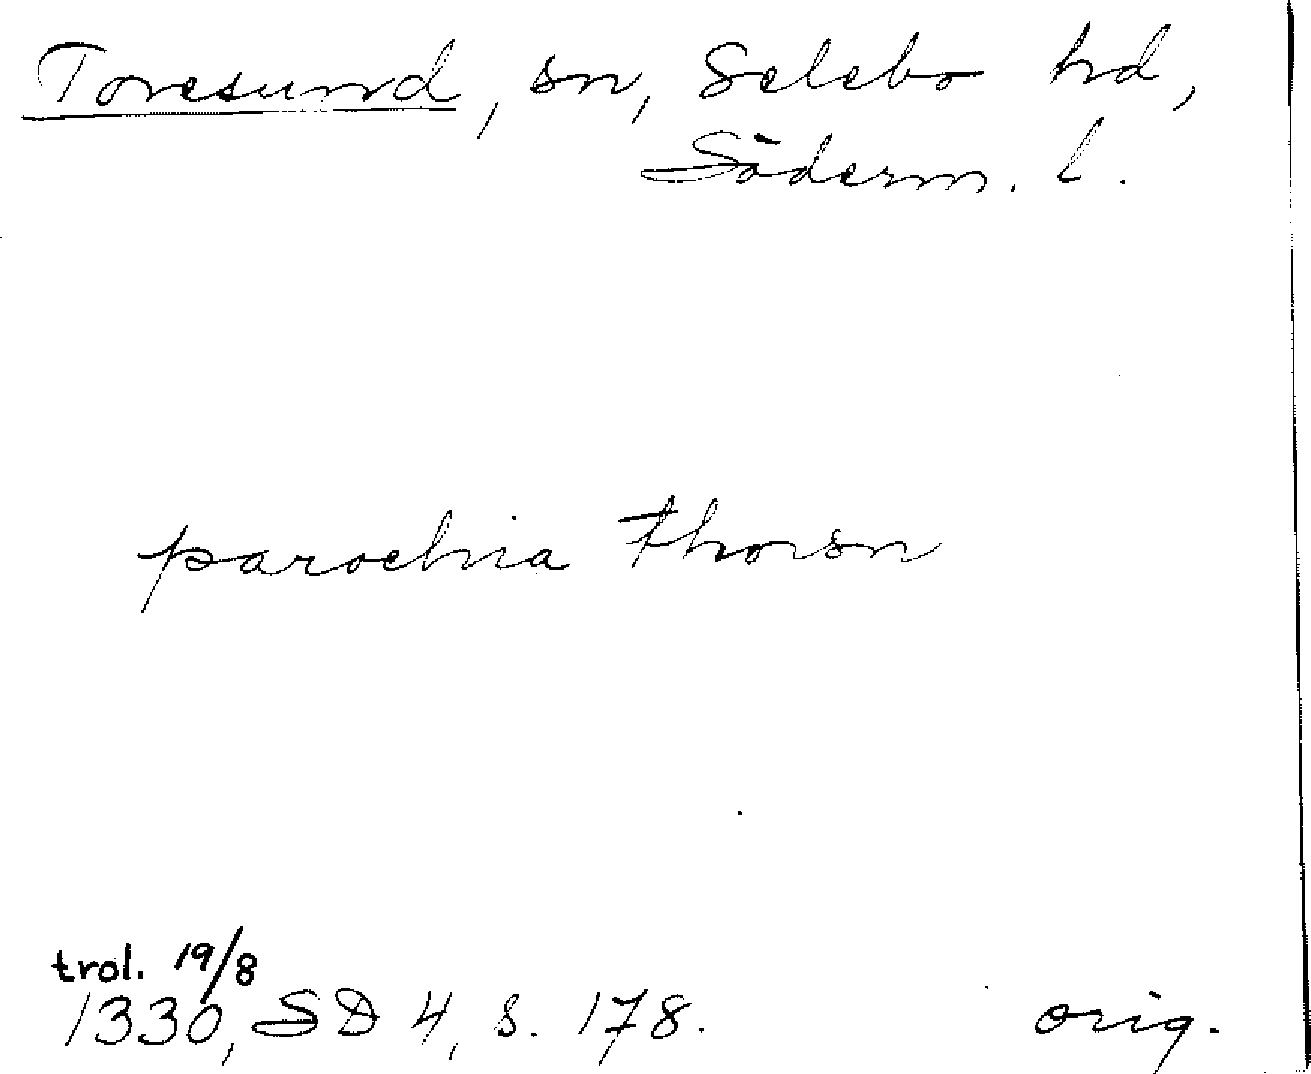 Toresund, sn, Selebo hd,
Söderm. l.
parochia Thorsn
trol. 19/8
1330, SD 4, s. 178. orig.